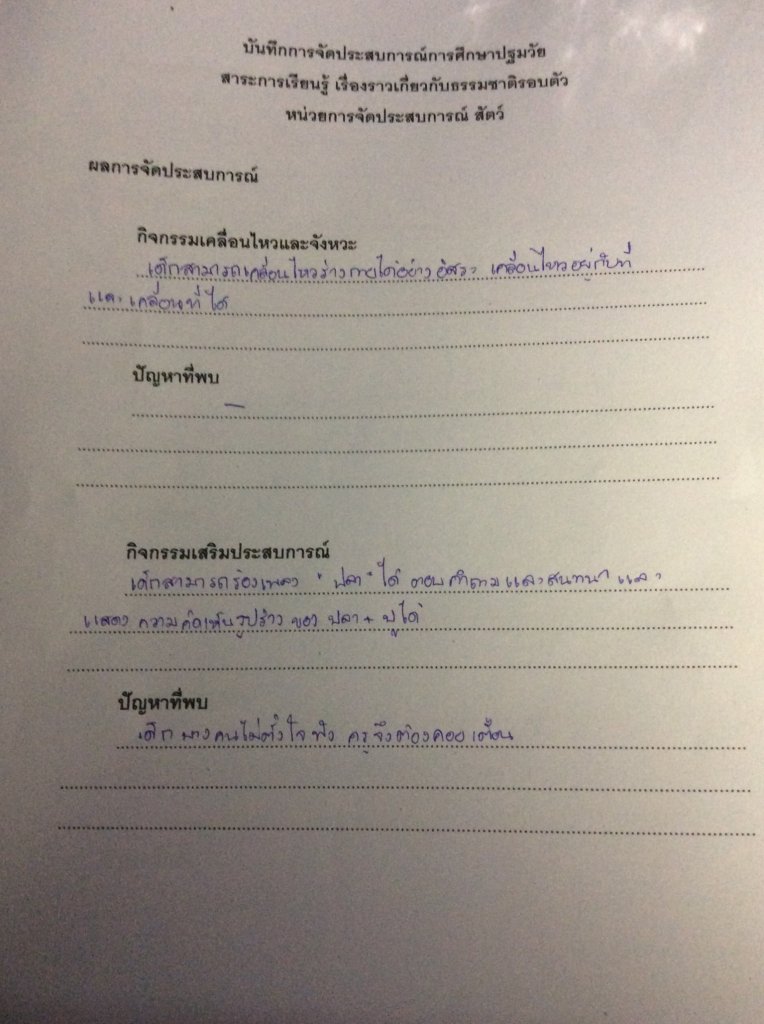 บันทึกการจัดประสบการณ์การศึกษาปฐมวัย
สาระการเรียนรู้ เรื่องราวเกี่ยวกับธรรมชาติรอบตัว
หน่วยการจัดประสบการณ์ สัตว์
ผลการจัดประสบการณ์
กิจกรรมเคลื่อนไหวและจังหวะ
เด็กสามารถเคลื่อนไหวร่างกายได้อย่างอิสระ เคลื่อนไหวอยู่กับที่
และเคลื่อนที่ได้
ปัญหาที่พบ
–
กิจกรรมเสริมประสบการณ์
เด็กสามารถร้องเพลง "ปลา" ได้ ตอบคำถามและสนทนา และ
แสดงความคิดเห็นรูปร่างของปลา + ปูได้
ปัญหาที่พบ
เด็กบางคนไม่ตั้งใจฟัง ครูจึงต้องคอยเตือน